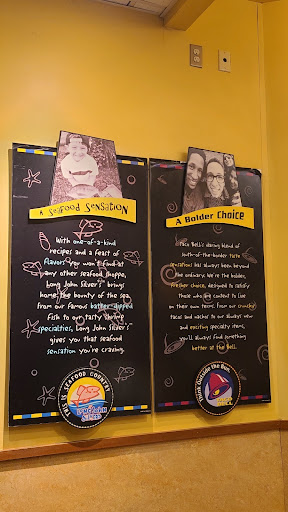 A Seafood Sensation
With one-of-a-kind
recipes and a feast of
flavors you won't find at
any other seafood shoppe,
Long John Silver's brings
home the bounty of the sea.
From our famous batter-dipped
fish to our tasty shrimp
specialties, Long John Silver's
gives you that seafood
sensation you're craving.
THIS IS SEAFOOD COUNTRY
LONG JOHN
SILVER'S
A Bolder Choice
Taco Bell's daring blend of
south-of-the-border taste
sensations has always been beyond
the ordinary. We're the bolder,
fresher choice, designed to satisfy
those who are content to live
their own lives. From our crunchy
tacos and nachos to our always new
and exciting specialty items,
you'll always find something
better at the Bell.
Think Outside the Bun